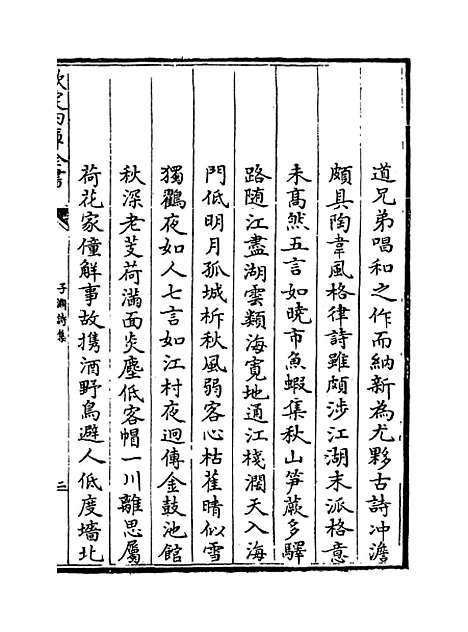 道兄弟唱和之作而納新為尤夥古詩冲澹
頗具陶韋風格律詩雖頗涉江湖末派格意
未髙然五言如曉市魚蝦集秋山笋蕨多驛
路随江盡湖雲類海寛地通江棧濶天入海
門低明月孤城柝秋風弱客心枯萑晴似雪
獨鸛夜如人七言如江村夜迥傳金鼓池館
秋深老芰荷滿面炎塵低客帽一川離思屬
荷花家僮解事故携酒野鳥避人低度墻北
欽定四庫全書
子淵詩集
三